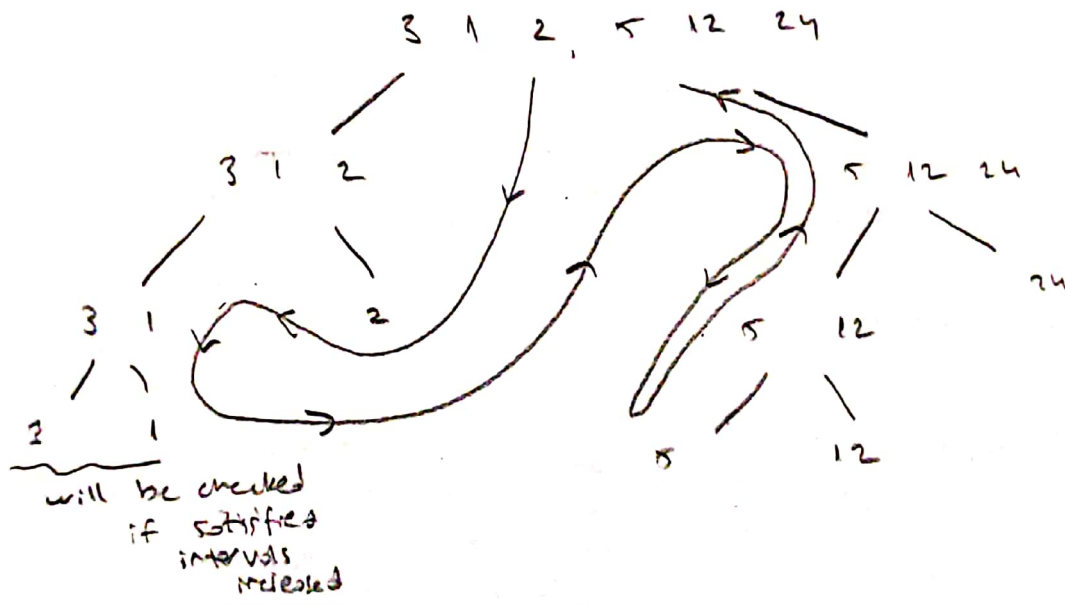 3 1 2, 5 12 24
3 1 2 5 12 24
3 1 2 5 12 24
3 1 5 12
will be checked
if satisfied
intervals